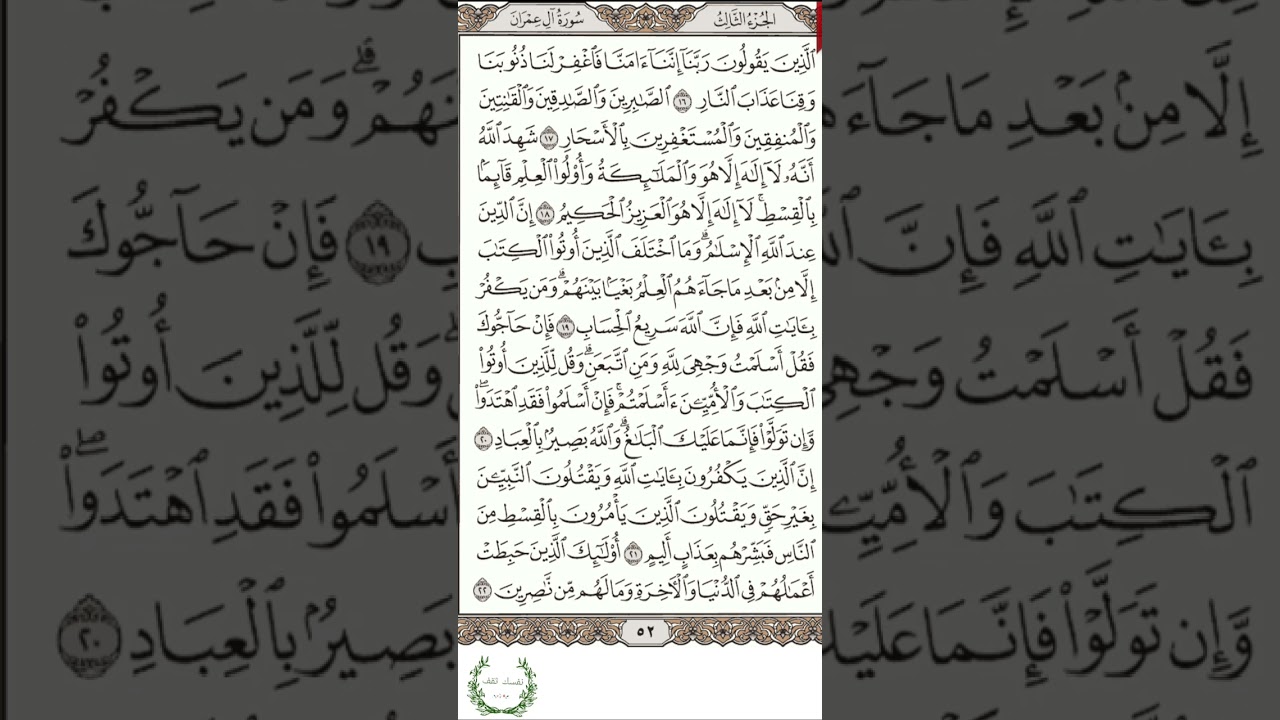 سُورَةُ آلِ عِمْرَانَ
الجُزْءُ الثَّالِثُ
ٱلَّذِينَ يَقُولُونَ رَبَّنَآ إِنَّنَآ ءَامَنَّا فَٱغْفِرْ لَنَا ذُنُوبَنَا
وَقِنَا عَذَابَ ٱلنَّارِ ١٦ ٱلصَّٰبِرِينَ وَٱلصَّٰدِقِينَ وَٱلْقَٰنِتِينَ
وَٱلْمُنفِقِينَ وَٱلْمُسْتَغْفِرِينَ بِٱلْأَسْحَارِ ١٧ شَهِدَ ٱللَّهُ
أَنَّهُۥ لَآ إِلَٰهَ إِلَّا هُوَ وَٱلْمَلَٰٓئِكَةُ وَأُو۟لُوا۟ ٱلْعِلْمِ قَآئِمًۢا
بِٱلْقِسْطِ ۚ لَآ إِلَٰهَ إِلَّا هُوَ ٱلْعَزِيزُ ٱلْحَكِيمُ ١٨ إِنَّ ٱلدِّينَ
عِندَ ٱللَّهِ ٱلْإِسْلَٰمُ ۗ وَمَا ٱخْتَلَفَ ٱلَّذِينَ أُوتُوا۟ ٱلْكِتَٰبَ
إِلَّا مِنۢ بَعْدِ مَا جَآءَهُمُ ٱلْعِلْمُ بَغْيًۢا بَيْنَهُمْ ۗ وَمَن يَكْفُرْ
بِـَٔايَٰتِ ٱللَّهِ فَإِنَّ ٱللَّهَ سَرِيعُ ٱلْحِسَابِ ١٩ فَإِنْ حَآجُّوكَ
فَقُلْ أَسْلَمْتُ وَجْهِىَ لِلَّهِ وَمَنِ ٱتَّبَعَنِ ۗ وَقُل لِّلَّذِينَ أُوتُوا۟
ٱلْكِتَٰبَ وَٱلْأُمِّيِّـۧنَ ءَأَسْلَمْتُمْ ۚ فَإِنْ أَسْلَمُوا۟ فَقَدِ ٱهْتَدَوا۟ ۖ
وَّإِن تَوَلَّوْا۟ فَإِنَّمَا عَلَيْكَ ٱلْبَلَٰغُ ۗ وَٱللَّهُ بَصِيرٌۢ بِٱلْعِبَادِ ٢٠
إِنَّ ٱلَّذِينَ يَكْفُرُونَ بِـَٔايَٰتِ ٱللَّهِ وَيَقْتُلُونَ ٱلنَّبِيِّـۧنَ
بِغَيْرِ حَقٍّ وَيَقْتُلُونَ ٱلَّذِينَ يَأْمُرُونَ بِٱلْقِسْطِ مِنَ
ٱلنَّاسِ فَبَشِّرْهُم بِعَذَابٍ أَلِيمٍ ٢١ أُو۟لَٰٓئِكَ ٱلَّذِينَ حَبِطَتْ
أَعْمَٰلُهُمْ فِى ٱلدُّنْيَا وَٱلْـَٔاخِرَةِ وَمَا لَهُم مِّن نَّٰصِرِينَ ٢٢
٥٢
ثقف نفسك